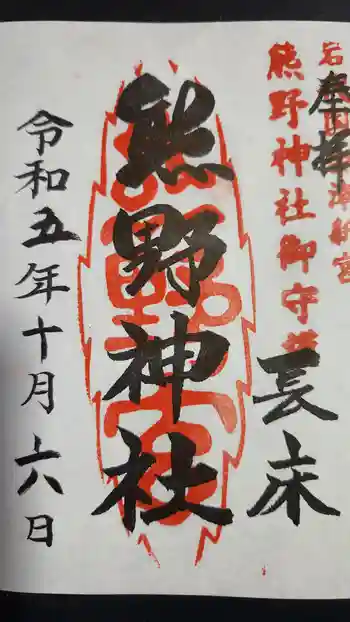 奉拝
岩 津新宮
熊野神社御守護
長床
熊野神社
令和五年十月十六日